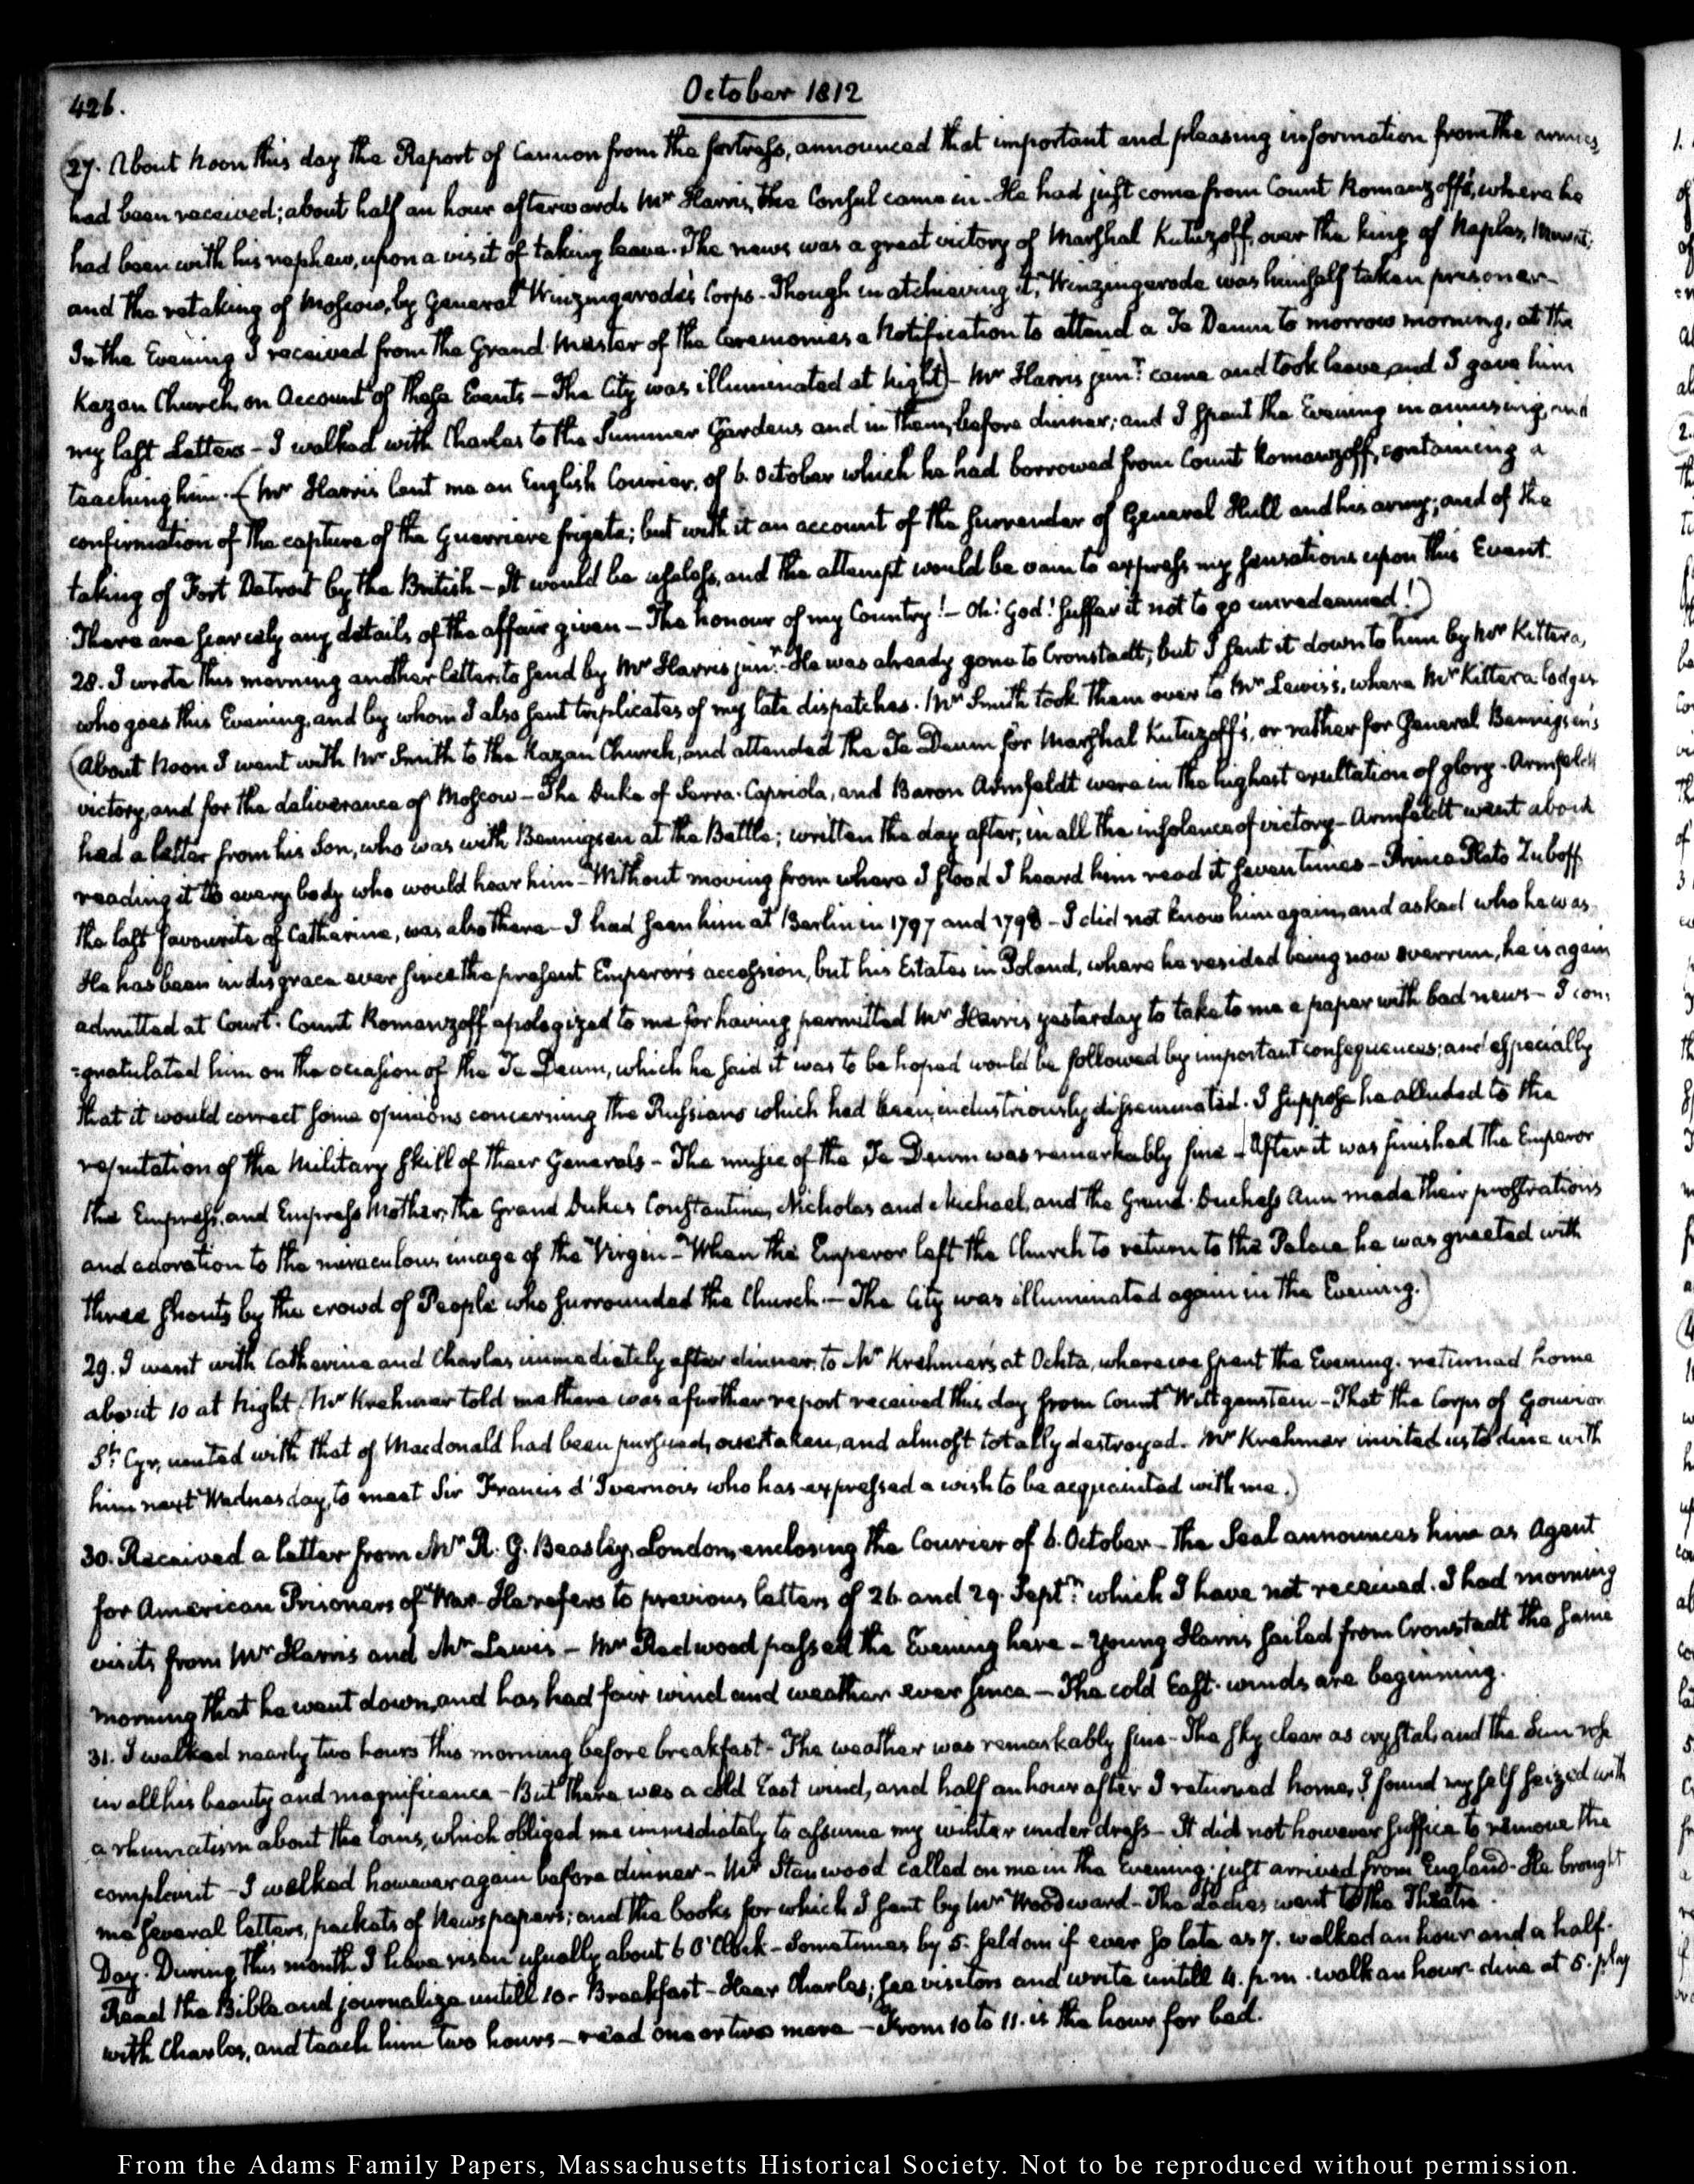 426.
October 1812
(27. About Noon this day the Report of Cannon from the fortress, announced that important and pleasing information from the armies
had been received; about half an hour afterwards Mr Harris, the Consul came in. He had just come from Count Romanzoff's, where he
had been with his nephew, upon a visit of taking leave. The news was a great victory of Marshal Kutuzoff, over the king of Naples, Murat;
and the retaking of Moscow, by General Winzingerode's Corps. Though in atchieving it, Winzingerode was himself taken prisoner—
In the Evening I received from the Grand Master of the Ceremonies a Notification to attend a Te Deum to morrow morning, at the
Kazan Church, on Account of these Events — The City was illuminated at Night) — Mr Harris junr. came and took leave, and I gave him
my last Letters — I walked with Charles to the Summer Gardens and in them, before dinner; and I spent the Evening in amusing, and
teaching him. (Mr Harris lent me an English Courier, of 6. October which he had borrowed from Count Romanzoff, containing a
confirmation of the capture of the Guerriere frigate; but with it an account of the surrender of General Hull and his army; and of the
taking of Fort Detroit by the British — It would be useless, and the attempt would be vain to express my sensations upon this Event.
There are scarcely any details of the affair given — The honour of my Country! — Oh! God! suffer it not to go unredeemed!)
28. I wrote this morning another letter, to send by Mr Harris junr. He was already gone to Cronstadt; but I sent it down to him by Mr Kittera,
who goes this Evening, and by whom I also sent triplicates of my late dispatches. Mr Smith took them over to Mr Lewis's, where Mr Kittera lodges
(About Noon I went with Mr Smith to the Kazan Church, and attended the Te Deum for Marshal Kutuzoff's, or rather for General Bennigsen's
victory, and for the deliverance of Moscow — The Duke of Serra-Capriola, and Baron Armfeldt were in the highest exultation of glory. Armfeldt
had a letter from his Son, who was with Bennigsen at the Battle; written the day after, in all the insolence of victory — Armfeldt went about
reading it to every body who would hear him — Without moving from where I stood I heard him read it seven times — Prince Plato Zuboff
the last favourite of Catharine, was also there — I had seen him at Berlin in 1797 and 1798 — I did not know him again, and asked who he was.
He has been in disgrace ever since the present Emperor's accession, but his Estates in Poland, where he resided being now overrun, he is again
admitted at Court. Count Romanzoff apologized to me for having permitted Mr Harris yesterday to take to me a paper with bad news — I con-
=gratulated him on the occasion of the Te Deum, which he said it was to be hoped would be followed by important consequences; and especially
that it would correct some opinions concerning the Russians which had been industriously disseminated. I suppose he alluded to the
reputation of the Military skill of their Generals — The music of the Te Deum was remarkably fine — After it was finished the Emperor
the Empress, and Empress Mother, the Grand Dukes Constantine, Nicholas and Michael, and the Grand Duchess Ann made their prostrations
and adoration to the miraculous image of the Virgin — When the Emperor left the Church to return to the Palace he was greeted with
three shouts by the crowd of People who surrounded the Church. — The City was illuminated again in the Evening.)
29. I went with Catherine and Charles immediately after dinner, to Mr Krehmer's at Ochta, where we spent the Evening. returned home
about 10 at Night (Mr Krehmer told me there was a further report received this day from Count Wittgenstein — That the Corps of Gouvion
St. Cyr, united with that of Macdonald had been pursued, overtaken, and almost totally destroyed. Mr Krehmer invited us to dine with
him next Wednesday, to meet Sir Francis d'Ivernois who has expressed a wish to be acquainted with me.)
30. Received a letter from Mr R. G. Beasley, London, enclosing the Courier of 6. October — The Seal announces him as Agent
for American Prisoners of War. He refers to previous letters of 26. and 29. Septr. which I have not received. I had morning
visits from Mr Harris and Mr Lewis — Mr Redwood passed the Evening here — Young Harris sailed from Cronstadt the same
morning that he went down, and has had fair wind and weather ever since — The cold East-winds are beginning.
31. I walked nearly two hours this morning before breakfast — The weather was remarkably fine — The sky clear as crystal, and the Sun rose
in all his beauty and magnificence — But there was a cold East wind, and half an hour after I returned home, I found myself seized with
a rheumatism about the loins, which obliged me immediately to assume my winter under dress — It did not however suffice to remove the
complaint — I walked however again before dinner — Mr Stanwood called on me in the Evening; just arrived from England. He brought
me several letters, packets of Newspapers; and the books for which I sent by Mr Woodward — The Ladies went to the Theatre.
Day. During this month I have risen usually about 6 O'Clock — Sometimes by 5. seldom if ever so late as 7. walked an hour and a half.
Read the Bible and journalize untill 10. Breakfast — Hear Charles; see visitors and write untill 4. p.m. walk an hour. dine at 5. play
with Charles, and teach him two hours — read one or two more — From 10 to 11. is the hour for bed.
From the Adams Family Papers, Massachusetts Historical Society. Not to be reproduced without permission.